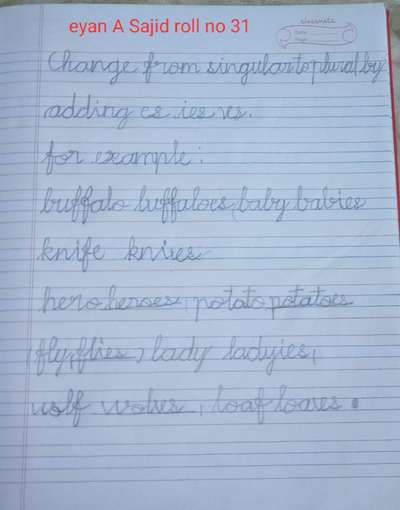 eyan A Sajid roll no 31
classmate
Date
Page
Change from singular to plural by
adding es ies ves.
for example:
buffalo buffaloes, baby babies
knife knives
hero heroes, potato potatoes
(fly, flies) lady ladyies,
wolf wolves, loaf loaves.